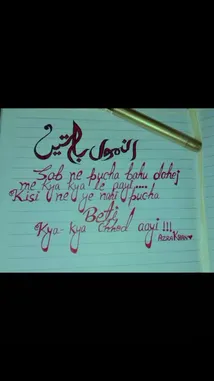 انمول باتیں
Sab ne pucha bahu dahej
me kya kya le aayi....
Kisi ne ye nahi pucha
Beti
Kya-kya chhod aayi !!!